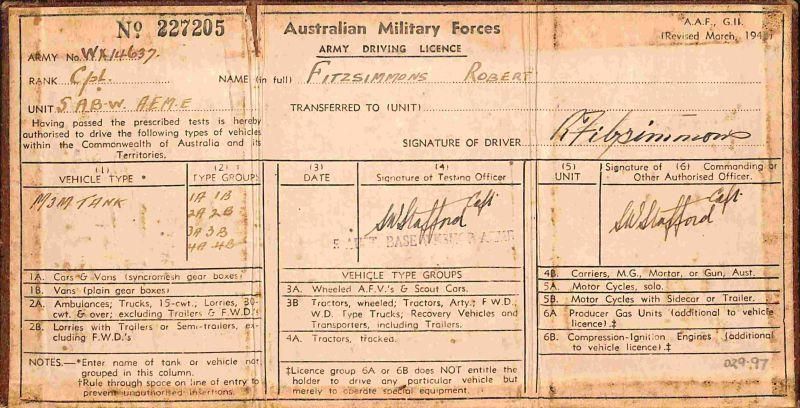 Nº 227205
Australian Military Forces
A.A.F., G.11.
(Revised March, 194
ARMY DRIVING LICENCE
ARMY No. WX14637.
RANK Cpl.
NAME (in full) FITZSIMMONS ROBERT
UNIT 5 A.B.W. A.E.M.E
TRANSFERRED TO (UNIT)
Having passed the prescribed tests is hereby
authorised to drive the following types of vehicles
within the Commonwealth of Australia and its
Territories.
SIGNATURE OF DRIVER R Fitzsimmons
(1)
VEHICLE TYPE *
(2) †
TYPE GROUPS
(3)
DATE
(4)
Signature of Testing Officer
(5)
UNIT
Signature of (6) Commanding or
Other Authorised Officer.
M3M TANK
1A 1B
2A 2B
3A 3B
4A 4B
SW Stafford Capt
BASE
SW Stafford Capt
1A. Cars & Vans (syncromesh gear boxes)
1B. Vans (plain gear boxes)
2A. Ambulances; Trucks, 15-cwt.; Lorries, 30-
cwt. & over; excluding Trailers & F.W.D.'s
2B. Lorries with Trailers or Semi-trailers, ex-
cluding F.W.D.'s
NOTES.—*Enter name of tank or vehicle not
grouped in this column.
†Rule through space on line of entry to
prevent unauthorised insertions.
VEHICLE TYPE GROUPS
3A. Wheeled A.F.V.'s & Scout Cars.
3B Tractors, wheeled; Tractors, Arty.; F.W.D.
W.D. Type Trucks; Recovery Vehicles and
Transporters, including Trailers.
4A. Tractors, tracked.
‡Licence group 6A or 6B does NOT entitle the
holder to drive any particular vehicle but
merely to operate special equipment.
4B. Carriers, M.G., Mortar, or Gun, Aust.
5A. Motor Cycles, solo.
5B. Motor Cycles with Sidecar or Trailer.
6A Producer Gas Units (additional to vehicle
licence).‡
6B. Compression-Ignition Engines (additional
to vehicle licence).‡
029.97